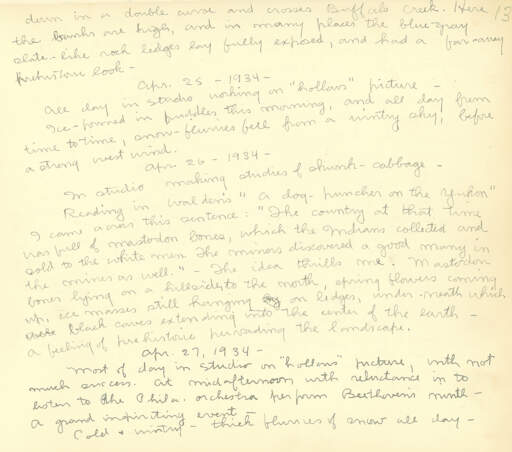 down in a double curve and crosses Buffalo Creek. Here 13
the banks are high, and in many places the blue-gray
slate-like rock ledges lay fully exposed, and had a far-away
prehistoric look -
Apr. 25 - 1934 -
All day in studio working on "hollows" picture -
Ice-formed in puddles this morning, and all day from
time to time, snow-flurries fell from a wintry sky, before
a strong west wind.
Apr. 26 - 1934 -
In studio making studies of skunk-cabbage -
Reading in Walden's "A dog-puncher on the Yukon"
I came across this sentence: "The country at that time
was full of mastodon bones, which the Indians collected and
sold to the white men. The miners discovered a good many in
the mines as well." - The idea thrills me! Mastodon
bones lying on a hillside to the north, spring flowers coming
up, ice masses still hanging on ledges, under-neath which
were black caves extending into the center of the earth -
a feeling of prehistoric pervading the landscape.
Apr. 27, 1934 -
Most of day in studio on "hollows" picture, with not
much success. At mid afternoon, with reluctance in to
listen to the Phila. orchestra perform Beethoven's ninth -
A grand inspiring event -
Cold & wintry - thick flurries of snow all day -